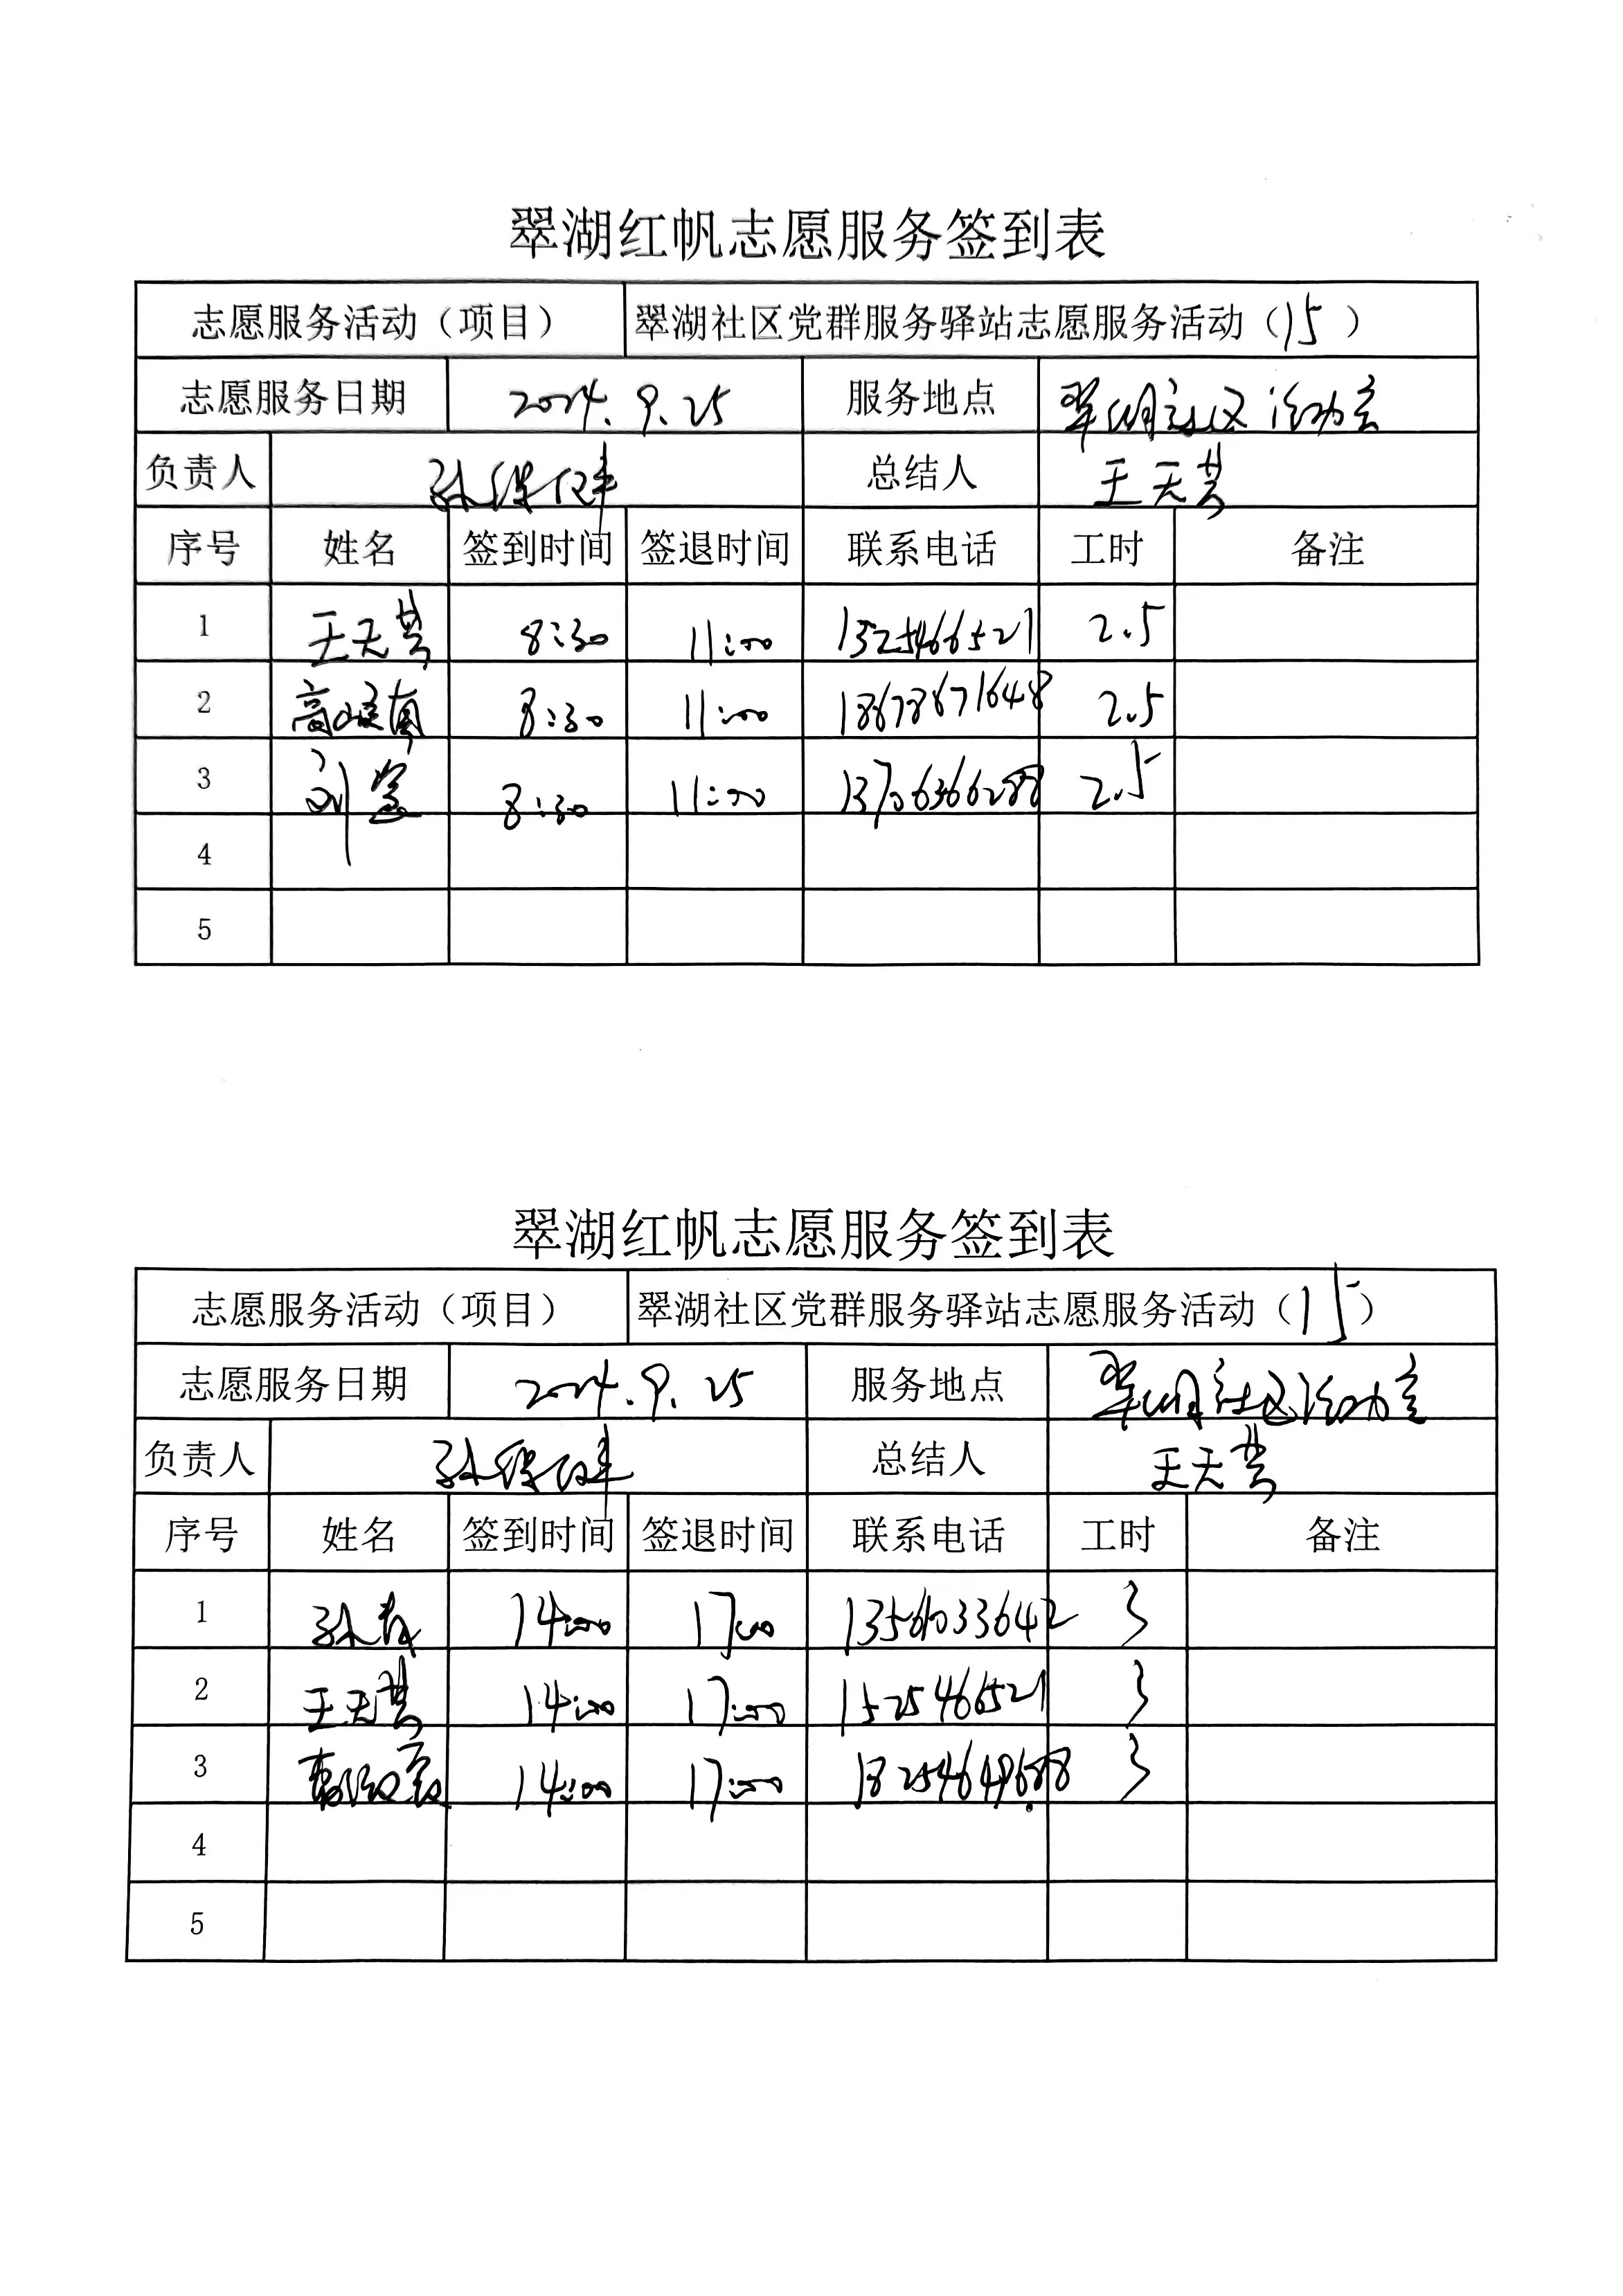 翠湖红帆志愿服务签到表
志愿服务活动（项目） 翠湖社区党群服务驿站志愿服务活动（15）
志愿服务日期 2024.9.25 服务地点 翠湖社区活动室
负责人 孙保华 总结人 王天芸
序号 姓名 签到时间 签退时间 联系电话 工时 备注
1 王天芸 8:30 11:00 2.5
2 8:30 11:00 18678671648 2.5
3 刘 8:30 11:00 13706366288 2.5
4
5
翠湖红帆志愿服务签到表
志愿服务活动（项目） 翠湖社区党群服务驿站志愿服务活动（15）
志愿服务日期 2024.9.25 服务地点 翠湖社区活动室
负责人 孙保华 总结人 王天芸
序号 姓名 签到时间 签退时间 联系电话 工时 备注
1 孙 14:00 17:00 3
2 王天芸 14:00 17:00 3
3 14:00 17:00 3
4
5